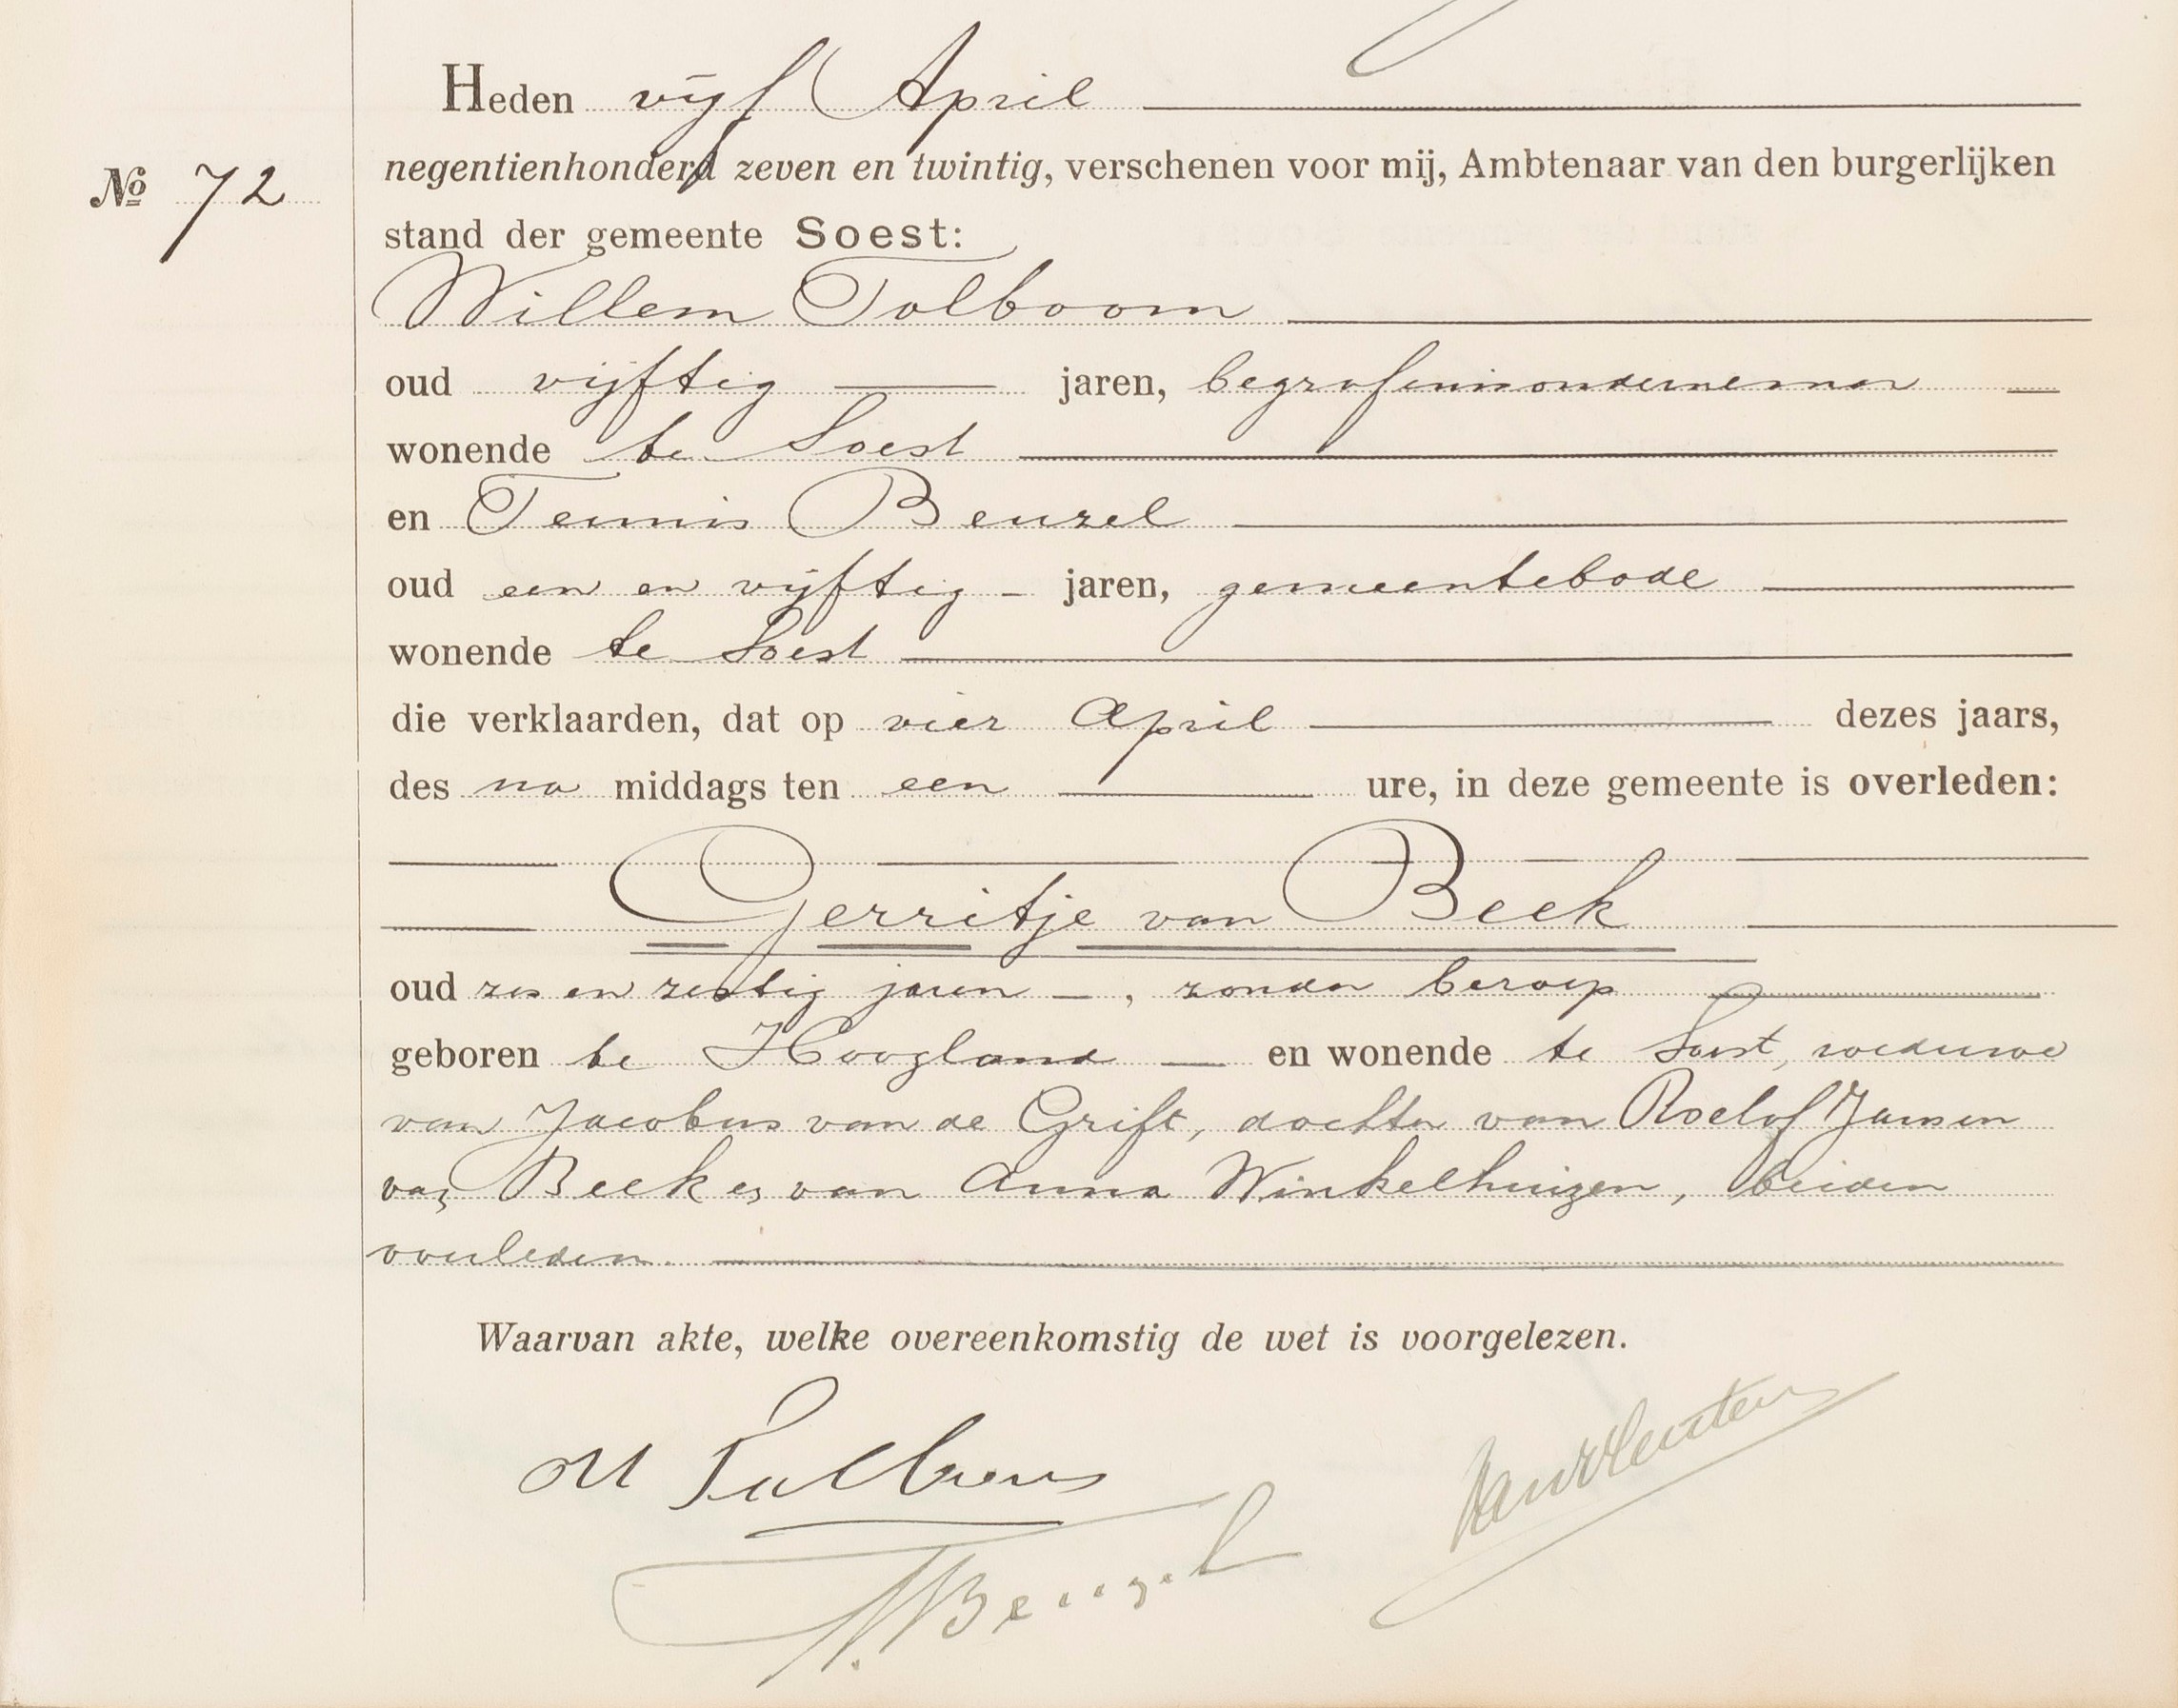 Heden vijf April
negentienhonderd zeven en twintig, verschenen voor mij, Ambtenaar van den burgerlijken
No 72
stand der gemeente Soest:
Willem Tolboom
oud vijftig jaren, begrafenisondernemer
wonende te Soest
en Teunis Beuzel
oud een en vijftig - jaren, gemeentebode
wonende te Soest
die verklaarden, dat op vier April dezes jaars,
des na middags ten een ure, in deze gemeente is overleden:
Gerritje van Beek
oud zes en zestig jaren —, zonder beroep
geboren te Hoogland — en wonende te Soest, weduwe
van Jacobus van de Grift, dochter van Roelof Jansen
van Beek en van Anna Winkelhuizen, beiden
overleden.
Waarvan akte, welke overeenkomstig de wet is voorgelezen.
W Tolboom
T. Beuzel